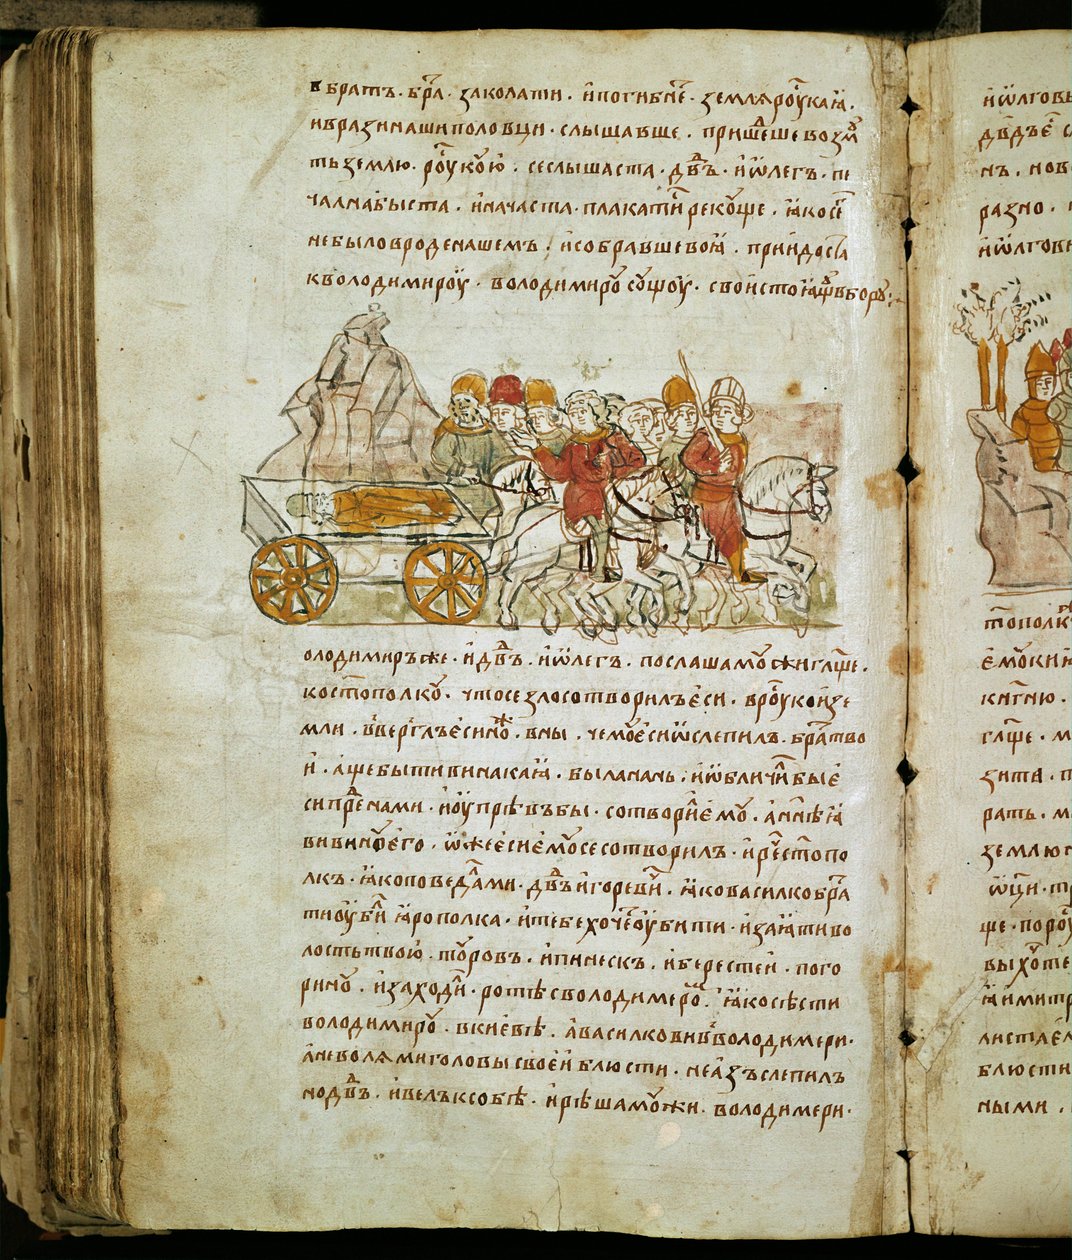 в братъ . бра҃ . заколати . и҆погибне҃ . земля роу҃скаꙗ .
ивразинашиполовци . слышавше . пришеⷣше возмꙋ
тьземлю . роу҃скꙋю . сеслышаста . дв҃дъ . и҆ѡ҆легъ . пе
чалнабыста . и҆начаста . плакатиⷭ҇ рекꙋще . ꙗ҆косеⷢ҇
небыловроденашемъ . и҆собравшевоꙗ҆ . прии҆доста
кволодимироу҆ . володимирꙋ сꙋщоу҆ . свои҆стоꙗщюⷨ вборꙋ .
олодимиръже . и҆дв҃дъ . и҆ѡ҆легъ . послашамꙋжиглщ҃е .
ко ст҃ополкꙋ . чтосезлосотворилъе҆си . вроу҃скои҆зе
мли . вверглъе҆синоⷤ . вны . чемꙋе҆сиѡ҆слепилъ . братⷭ҇во
и҆ . а҆щебытивинакаꙗ . быланань . и҆ѡ҆бличиⷧ҇ быⷯ е҆
сипреⷣнами . и҆оу҆прѣвъбы . сотвориⷧ҇е҆мꙋ . а҆нн҃ѣꙗ
вивинꙋе҆го . ѡ҆же е҆сие҆мꙋсесотворилъ . и҆реч҇ ст҃опо
лкъ . ꙗ҆коповедамиⷧ҇ . дв҃дъи҆горевиⷱ . ꙗ҆ковасилкобраⷮ
тиоу҆биⷧ ꙗ҆рополка . и҆тебехоче҃ оу҆бити . и҆заꙗ҆тиво
лостьтвою . тꙋровъ . и҆пинескъ . и҆берестеи . пого
ринꙋ . и҆заходиⷧ . ротѣсволодимероⷨ . ꙗ҆косѣсти
володимирꙋ . вкиевѣ . а҆василковивволодимери .
а҆неволямиголовысвоеи҆блюсти . неа҆зъслепилъ
нодв҃дъ . и҆велъксобѣ . и҆рѣшамꙋжи . володимери .
и҆ѡ҆лговь
дв҃дъе҆
нъ . нов
разно .
и҆ѡ҆лгов
ст҃ополк
е҆мꙋки
глщ҃е . м
зита . п
рать . м
землю
ѡ҆ци . т
ще . пороу
выхоте
ꙗ҆имитр
блюсти
ными .